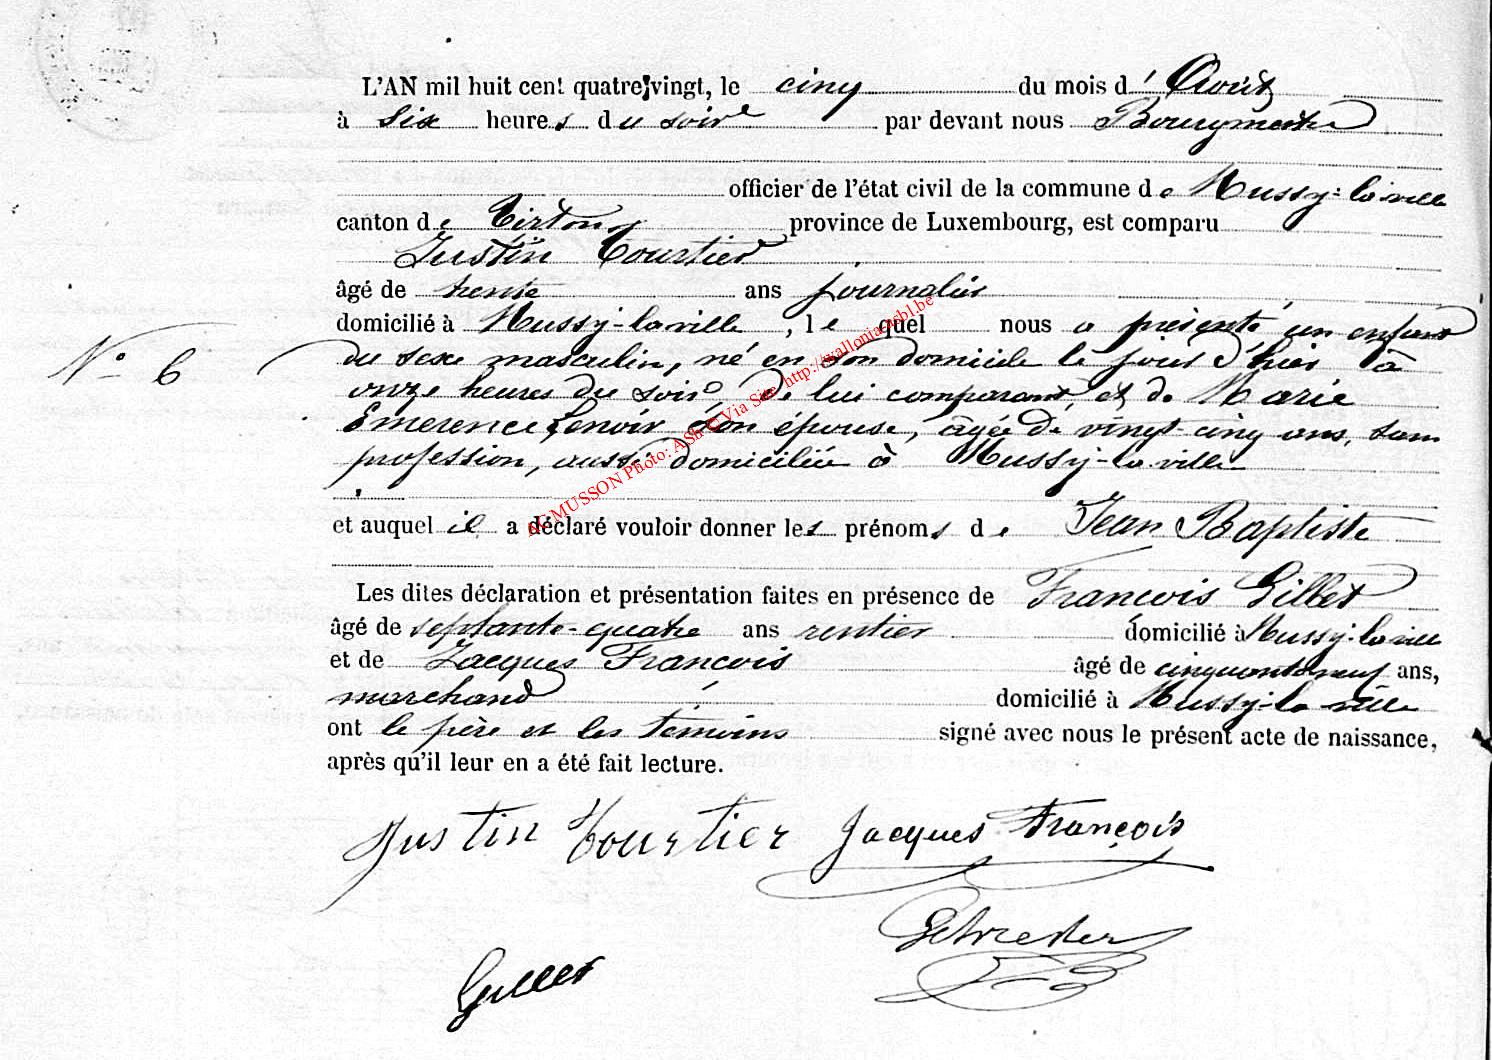 L'AN mil huit cent quatre-vingt, le cinq du mois d' Août
à six heures du soir par devant nous Bourgmestre
officier de l'état civil de la commune de Mussy-la-ville
canton de Virton province de Luxembourg, est comparu
Justin Tourtier
âgé de trente ans journalier
domicilié à Mussy-la-ville, lequel nous a présenté un enfant
N° 6
du sexe masculin, né en son domicile le jour d'hier à
onze heures du soir, de lui comparant, et de Marie
Emerence Lenoir son épouse, âgée de vingt-cinq ans, sans
profession, aussi domiciliée à Mussy-la-ville
et auquel il a déclaré vouloir donner les prénoms de Jean Baptiste
Les dites déclaration et présentation faites en présence de François Gillet
âgé de septante-quatre ans rentier domicilié à Mussy-la-ville
et de Jacques François âgé de cinquante neuf ans,
marchand domicilié à Mussy-la-ville
ont le père et les témoins signé avec nous le présent acte de naissance,
après qu'il leur en a été fait lecture.
AGMUSSON Photo: ASBL Via Site http://wallonia-asbl.be
Justin Tourtier Jacques François
Gillet